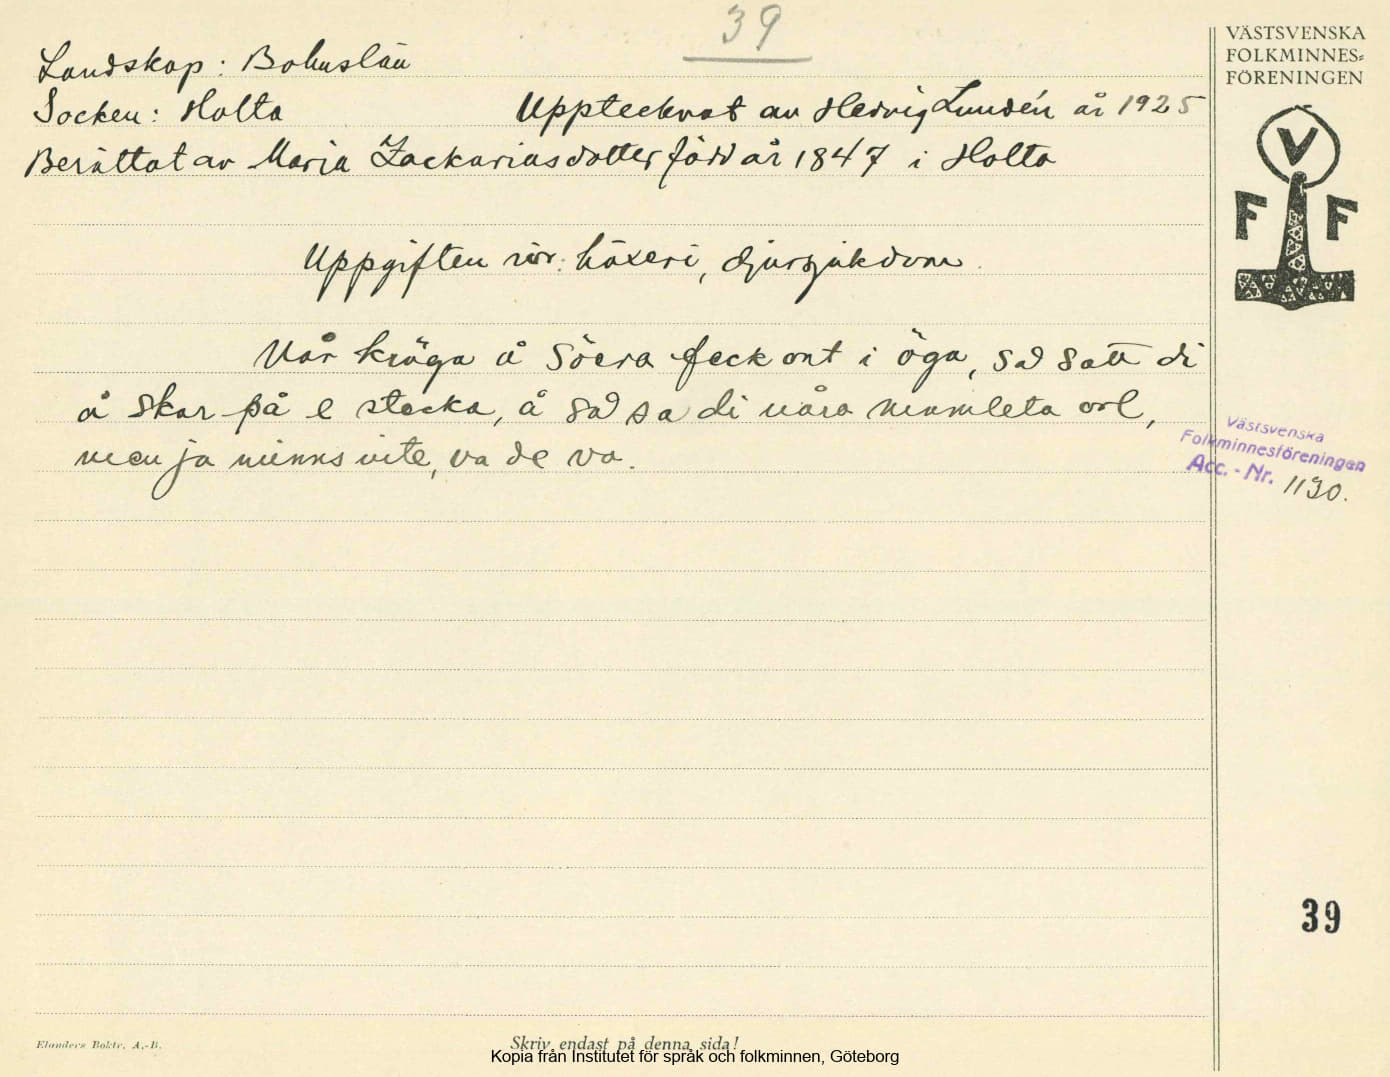 39
Landskap: Bohuslän
Socken: Holta Upptecknat av Hedvig Lundén år 1925
Berättat av Maria Zackariasdotter född år 1847 i Holta
Uppgiften rör: häxeri, djursjukdom.
När kröga å fick ont i öga, så satt di
å skar på e stecka, å så sa di våra mumleta ord,
men ja minns inte, va de va.
VÄSTSVENSKA
FOLKMINNES=
FÖRENINGEN
V
F F
Västsvenska
Folkminnesföreningen
Acc. - Nr. 1130.
39
Elanders Boktr. A.-B.
Skriv endast på denna sida!
Kopia från Institutet för språk och folkminnen, Göteborg